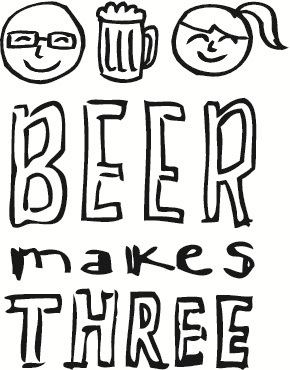 BEER
makes
THREE